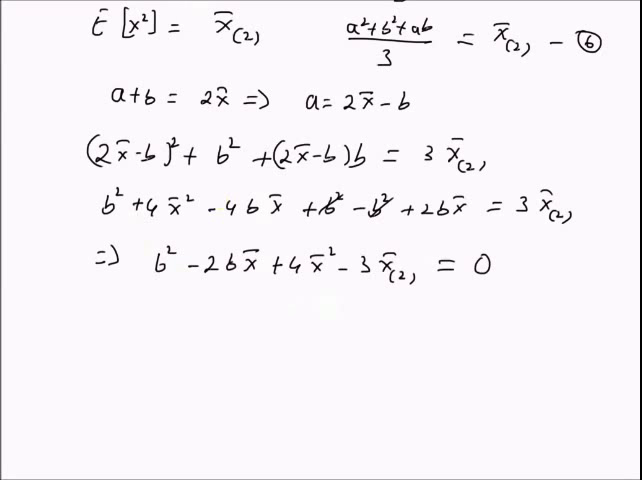 E[x²] = x̄₍₂₎  (a²+b²+ab)/3 = x̄₍₂₎ – ⑥
a+b = 2x̄ => a = 2x̄ - b
(2x̄-b)² + b² + (2x̄-b)b = 3 x̄₍₂₎
b² + 4x̄² - 4bx̄ + b² - b² + 2bx̄ = 3 x̄₍₂₎
=> b² - 2bx̄ + 4x̄² - 3x̄₍₂₎ = 0